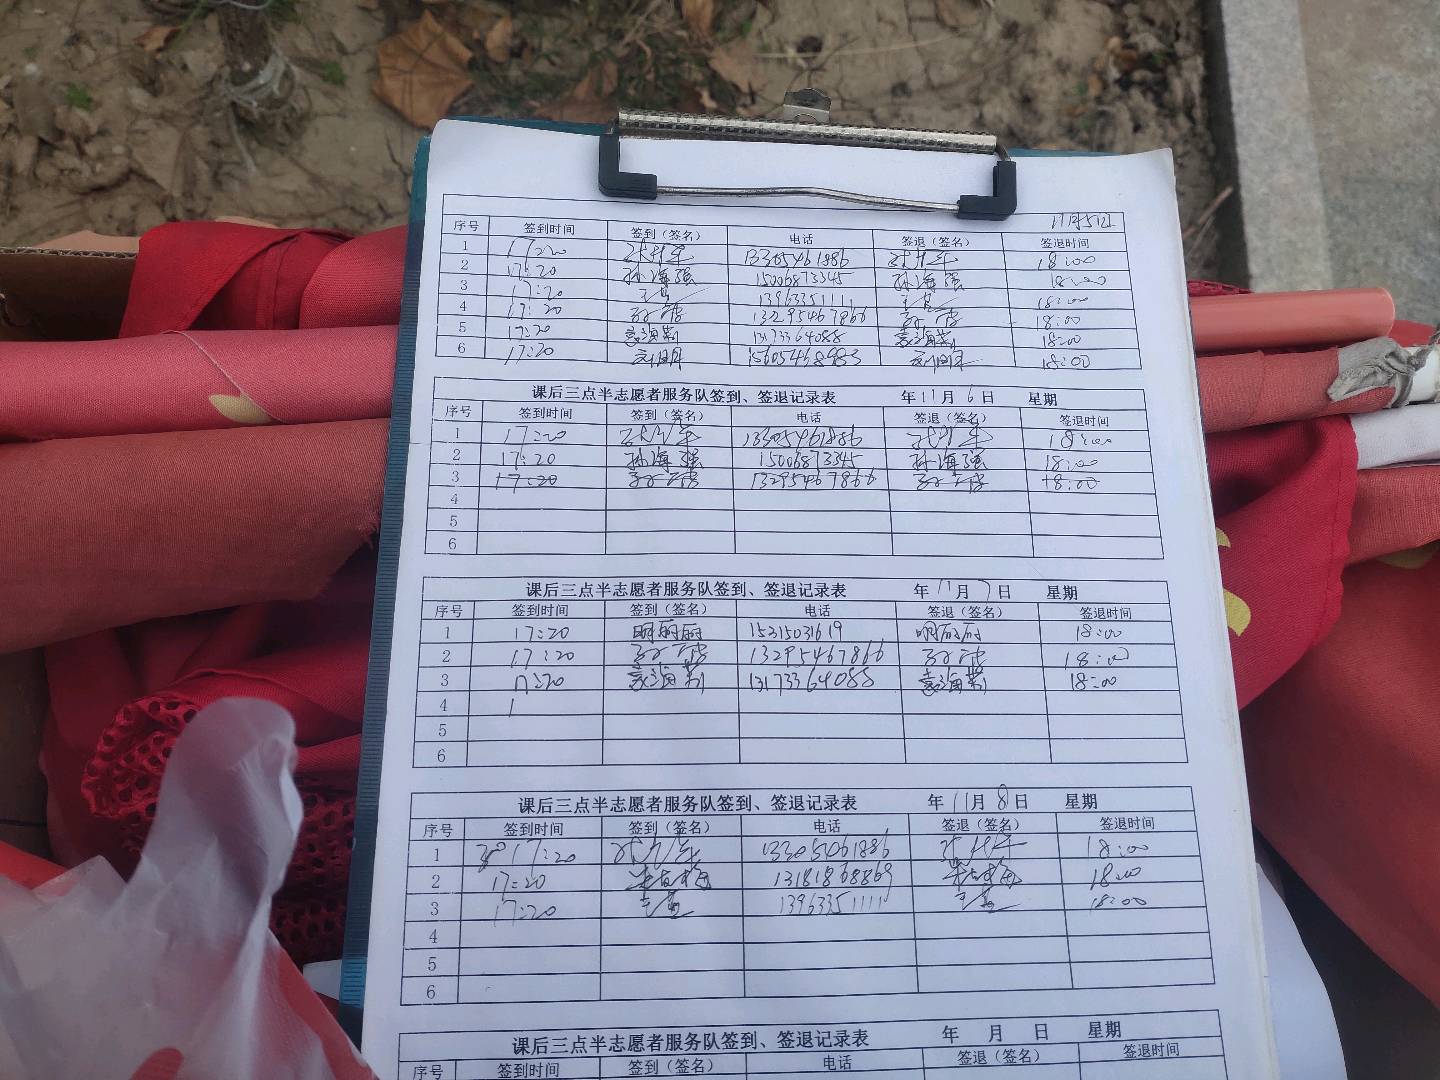 11月5日
序号 签到时间 签到（签名） 电话 签退（签名） 签退时间
1 17:20 13305461886 18:00
2 17:20 孙海强 15006873345 孙海强 18:00
3 17:20 13963351111 18:00
4 17:20 13295467866 18:00
5 17:20 袁海荆 13173364088 袁海荆 18:00
6 17:20 15605468983 18:00
课后三点半志愿者服务队签到、签退记录表 年11月6日 星期
序号 签到时间 签到（签名） 电话 签退（签名） 签退时间
1 17:20 13305461886 18:00
2 17:20 孙海强 15006873345 孙海强 18:00
3 17:20 13295467866 18:00
4
5
6
课后三点半志愿者服务队签到、签退记录表 年11月7日 星期
序号 签到时间 签到（签名） 电话 签退（签名） 签退时间
1 17:20 明丽丽 15215031619 明丽丽 18:00
2 17:20 13295467866 18:00
3 17:20 袁海荆 13173364088 袁海荆 18:00
4 1
5
6
课后三点半志愿者服务队签到、签退记录表 年11月8日 星期
序号 签到时间 签到（签名） 电话 签退（签名） 签退时间
1 17:20 13305061886 18:00
2 17:20 13181868869 18:00
3 17:20 13963351111 18:00
4
5
6
课后三点半志愿者服务队签到、签退记录表 年 月 日 星期
序号 签到时间 签到（签名） 电话 签退（签名） 签退时间